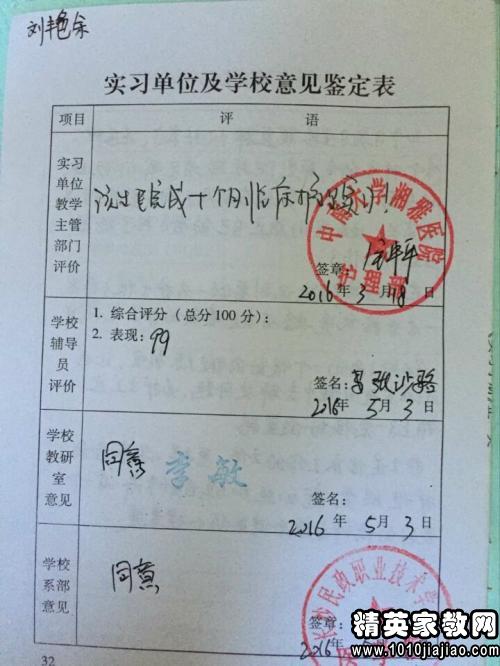 刘艳余
实习单位及学校意见鉴定表
项目 评语
实习
单位
教学
主管
部门
评价
该生完成十个月临床病房实习!
中南大学湘雅医院
护理部
签章:
2016年3月18日
学校
辅导
员
评价
1. 综合评分(总分100分):
2. 表现: 99
签名:
2016年5月3日
学校
教研
室
意见
同意
李敏
签名:
2016年5月3日
学校
系部
意见
同意
长沙民政职业技术学
签章:
2016年
32
精英家教网
www.1010jiajiao.com